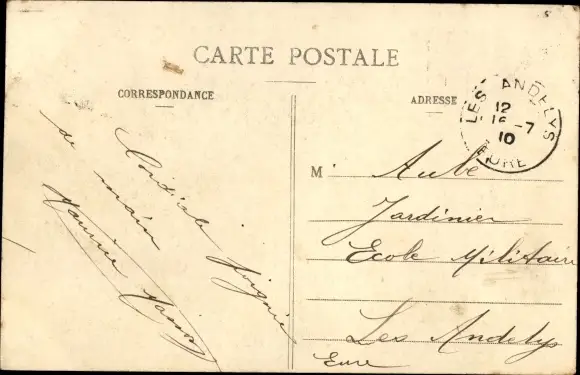 CARTE POSTALE
CORRESPONDANCE
Cordiale poignée
de main
Maurice
ADRESSE
LES ANDELYS
12
16 -7
10
EURE
M Aube
Jardinier
Ecole Militaire
Les Andelys
Eure